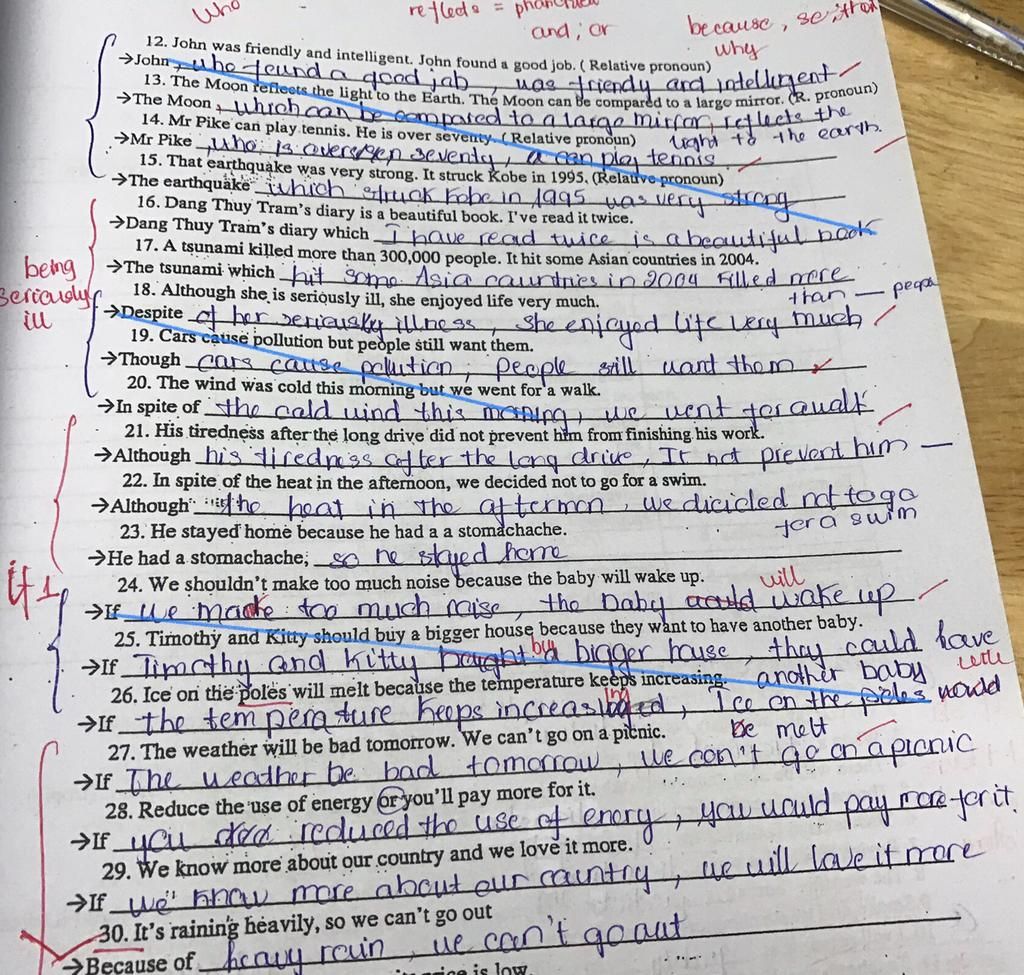 who
reflects =
and ; or
because, so, 
why
12. John was friendly and intelligent. John found a good job. ( Relative pronoun)
→John , who found a good job , was friendy and intellergent
13. The Moon reflects the light to the Earth. The Moon can be compared to a largo mirror. (R. pronoun)
→The Moon , which can be compared to a large mirror, reflects the
light to the earth.
14. Mr Pike can play tennis. He is over seventy. ( Relative pronoun)
→Mr Pike who is seventy, can play tennis
15. That earthquake was very strong. It struck Kobe in 1995. (Relative pronoun)
→The earthquake which struck Kobe in 1995 was very strong
16. Dang Thuy Tram's diary is a beautiful book. I've read it twice.
→Dang Thuy Tram's diary which I have read twice is a beautiful book
17. A tsunami killed more than 300,000 people. It hit some Asian countries in 2004.
→The tsunami which hit some Asia countries in 2004 killed more
than —
being
seriously
ill
18. Although she is seriously ill, she enjoyed life very much.
→Despite of her seriously illness, she enjoyed life very much
19. Cars cause pollution but people still want them.
→Though cars cause pollution, people still want them
20. The wind was cold this morning but we went for a walk.
→In spite of the cold wind this morning, we went for a walk
21. His tiredness after the long drive did not prevent him from finishing his work.
→Although his tiredness after the long drive, It not prevent him —
22. In spite of the heat in the afternoon, we decided not to go for a swim.
→Although the heat in the aftermon, we dicicled not to go
for a swim
23. He stayed home because he had a a stomachache.
→He had a stomachache, so he stayed home
If 1
24. We shouldn't make too much noise because the baby will wake up.
will
→If we make too much noise, the baby could wake up
25. Timothy and Kitty should buy a bigger house because they want to have another baby.
buy
→If Timothy and Kitty bought a bigger house, they could have
another baby
26. Ice on the poles will melt because the temperature keeps increasing.
ing
will
→If the temperature keeps increased, Ice on the poles would
be melt
27. The weather will be bad tomorrow. We can't go on a picnic.
→If The weather be bad tomorrow, we can't go on a picnic
28. Reduce the use of energy or you'll pay more for it.
→If you reduced the use of energy, you would pay more for it.
29. We know more about our country and we love it more.
→If we know more about our country, we will love it more
30. It's raining heavily, so we can't go out
→Because of heavy rain, we can't go out
is low.